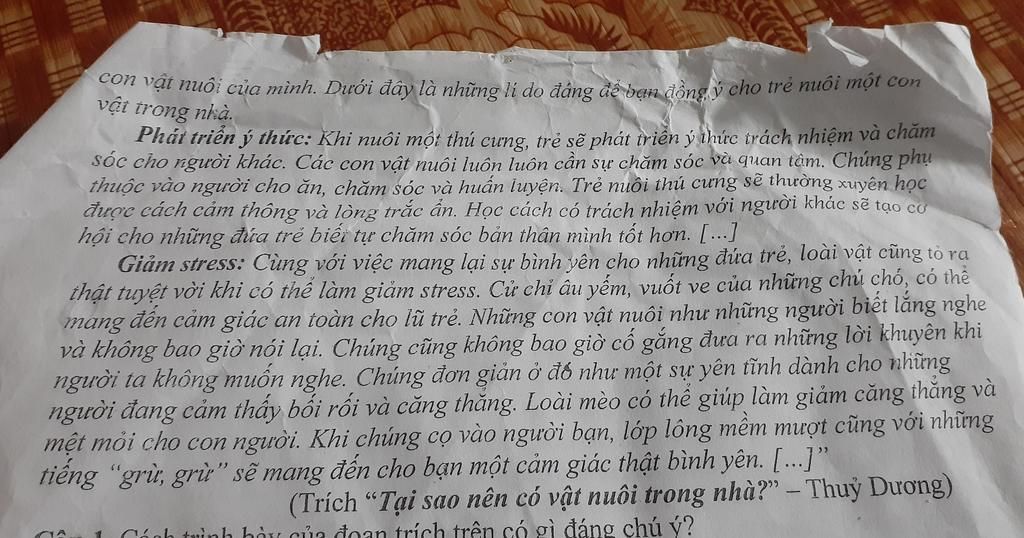 con vật nuôi của mình. Dưới đây là những lí do đáng để bạn đồng ý cho trẻ nuôi một con
vật trong nhà.
Phát triển ý thức: Khi nuôi một thú cưng, trẻ sẽ phát triển ý thức trách nhiệm và chăm
sóc cho người khác. Các con vật nuôi luôn luôn cần sự chăm sóc và quan tâm. Chúng phụ
thuộc vào người cho ăn, chăm sóc và huấn luyện. Trẻ nuôi thú cưng sẽ thường xuyên học
được cách cảm thông và lòng trắc ẩn. Học cách có trách nhiệm với người khác sẽ tạo cơ
hội cho những đứa trẻ biết tự chăm sóc bản thân mình tốt hơn. [...]
Giảm stress: Cùng với việc mang lại sự bình yên cho những đứa trẻ, loài vật cũng tỏ ra
thật tuyệt vời khi có thể làm giảm stress. Cử chỉ âu yếm, vuốt ve của những chú chó, có thể
mang đến cảm giác an toàn cho lũ trẻ. Những con vật nuôi như những người biết lắng nghe
và không bao giờ nói lại. Chúng cũng không bao giờ cố gắng đưa ra những lời khuyên khi
người ta không muốn nghe. Chúng đơn giản ở đó như một sự yên tĩnh dành cho những
người đang cảm thấy bối rối và căng thẳng. Loài mèo có thể giúp làm giảm căng thẳng và
mệt mỏi cho con người. Khi chúng cọ vào người bạn, lớp lông mềm mượt cũng với những
tiếng “grừ, grừ” sẽ mang đến cho bạn một cảm giác thật bình yên. [...]”
(Trích “Tại sao nên có vật nuôi trong nhà?” – Thuỳ Dương)
Câu 1. Cách trình bày của đoạn trích trên có gì đáng chú ý?